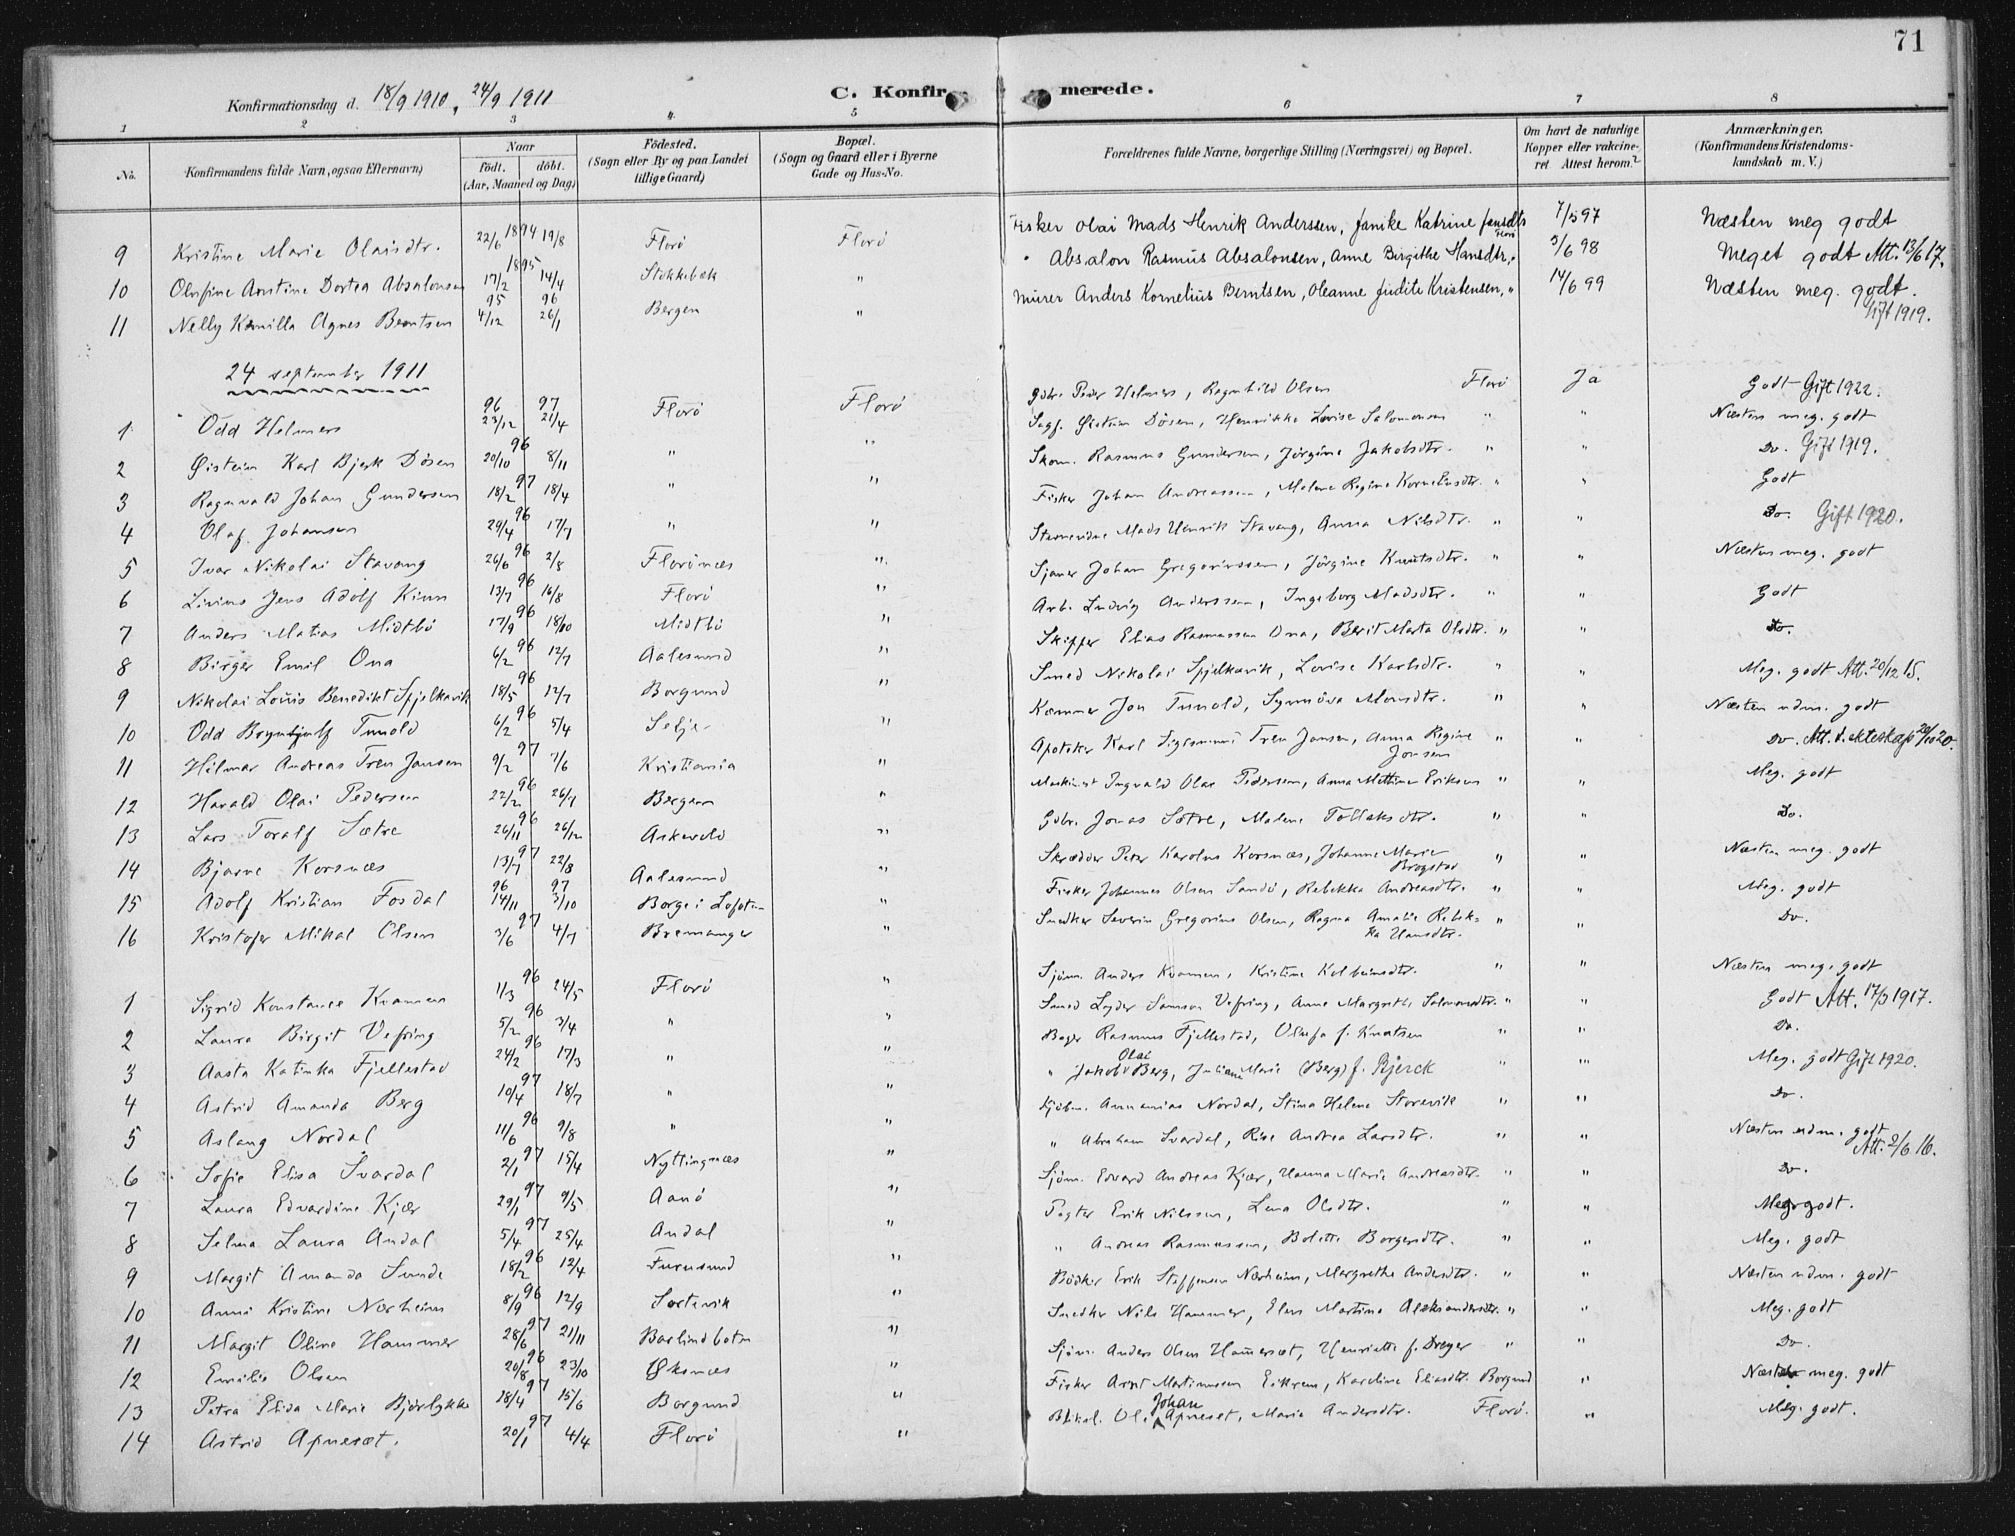 71
Konfirmationsdag d. 18/9 1910, 24/9 1911
C. Konfirmerede.
1 2 3 4 5 6 7 8
No. Konfirmandens fulde Navn, ogsaa Efternavn) Naar Födt. döbt. (Aar, Maaned og Dag) Födested. (Sogn eller By og paa Landet tillige Gaard) Bopæl. (Sogn og Gaard eller i Byerne Gade og Hus-No. Forældrenes fulde Navne, borgerlige Stilling (Næringsvei) og Bopæl. Om havt de naturlige Kopper eller vakcineret. Attest herom? Anmærkninger. (Konfirmandens Kristendomskundskab m. V.)
9 Kristine Marie Olaisdtr. 22/6 1894 19/8 Florö Florö Fisker Olai Mads Henrik Anderssen, Janike Katrine Jansdtr Florö 7/5 97 Næsten meg godt
10 Olufine Arstine Dortea Absalonsen 17/2 1895 14/4 Stokkebæk " " Absalon Rasmus Absalonsen, Anne Birgithe Hansdtr, " 3/6 98 Meget godt Att. 13/6 17.
11 Nelly Kamilla Agnes Berntsen 95 4/12 96 26/1 Bergen " Murer Anders Kornelius Berntsen, Oleanne Judite Kristensen, " 14/6 99 Næsten meg. godt. Gift 1919.
24 september 1911
1 Odd Helmers 96 23/12 97 21/4 Florö Florö Gdbr. Peder Helmers, Ragnhild Olsen Florö Ja Godt Gift 1922.
2 Øistein Karl Bjerk Dösen 20/10 96 8/11 " " Sagf. Øistein Dösen, Henrikke Lovise Salomonsen " " Næsten meg. godt
3 Ragnvald Johan Gundersen 18/2 97 18/4 " " Skom. Rasmus Gundersen, Jörgine Jakobsdtr. " " Do. Gift 1919.
4 Olaf Johansen 29/4 96 17/7 " " Fisker Johan Andreassen, Malene Regine Korneliusdtr. " " Godt
5 Ivar Nikolai Stavang 26/6 96 2/8 Florönæs " Mads Henrik Stavang, Anna Nilsdtr. " " Do. Gift 1920.
6 Livius Jens Adolf Kinn 13/7 96 16/8 Florö " Johan Gregoriussen, Jörgine Knutsdtr. " " Næsten meg. godt
7 Anders Matias Midtbö 17/9 96 18/10 Midtbö " Arb. Ludvig Anderssen, Ingeborg Madsdtr. " " Godt
8 Birger Emil Ona 6/2 96 12/7 Aalesund " Skipper Elias Rasmussen Ona, Berit Marta Olsdtr. " " Do.
9 Nikolai Louis Benedikt Spjelkavik 18/5 96 12/7 Borgund " Smed Nikolai Spjelkavik, Lovise Karlsdtr. " " Meg. godt Att. 20/12 15.
10 Odd Brynhjulf Tunold 6/2 96 5/4 Selje " Kæmner Jon Tunold, Synnöva Monsdtr. " " Næsten udm. godt
11 Hilmar Andreas Tren Jansen 9/2 97 7/6 Kristiania " Apoteker Karl Sigismund Tren Jansen, Anna Regine Jansen " " Do. Att. t. ekteskap 20/10 20.
12 Harald Olai Pedersen 22/2 96 26/7 Bergen " Maskinist Ingvald Olai Pedersen, Anna Mattina Eriksen " " Meg. godt
13 Lars Toralf Sætre 26/11 96 26/12 Askevold " Gdbr. Jonas Sætre, Malene Tollaksdtr. " " Do.
14 Bjarne Korsnæs 13/7 97 22/8 Aalesund " Skrædder Peter Karolus Korsnæs, Johanne Marie Brogstad " " Næsten meg. godt
15 Adolf Kristian Fosdal 96 14/11 97 3/10 Borge i Lofoten " Fisker Johannes Olsen Sandö, Rebekka Andreasdtr. " " Meg. godt
16 Kristofer Mikal Olsen 3/6 97 4/7 Bremanger " Snedker Severin Gregorius Olsen, Ragna Amalie Rebekka Hansdtr. " " Do.
1 Sigrid Konstance Kvammen 1/3 96 24/5 Florö " Sjöm. Anders Kvammen, Kristine Kolbeinsdtr. " " Næsten meg. godt
2 Laura Birgit Vefring 5/2 96 3/4 " " Smed Lyder Samson Vefring, Anne Margrethe Salomonsdtr. " " Godt Att. 17/3 1917.
3 Aasta Katinka Fjellestad 24/2 96 17/3 " " Bager Rasmus Fjellestad, Olufa f. Knutsen " " Do.
4 Astrid Amanda Berg 10/4 97 18/7 " " " Jakob Olai Berg, Juliane Marie (Berg) f. Bjerck " " Meg. godt Gift 1920.
5 Aslaug Nordal 11/6 96 9/8 " " Kjöbm. Annanias Nordal, Stina Helene Storevik " " Do.
6 Sofie Elisa Svardal 2/1 97 15/4 Nyttingnæs " " Abraham Svardal, Rise Andrea Larsdtr. " " Næsten udm. godt Att. 2/6 16.
7 Laura Edvardine Kjær 29/1 97 9/5 Aanö " Sjöm. Edvard Andreas Kjær, Hanna Marie Andreasdtr. " " Do.
8 Selma Laura Andal 5/4 97 25/4 Andal " Erik Nilssen, Lena Olsdtr. " " Meg godt.
9 Margit Amanda Sunde 18/2 96 12/4 Furusund " " Andreas Rasmussen, Bolette Borgersdtr. " " Meg. godt
10 Anni Kristine Nærheim 8/9 96 12/9 Sortevik " Bödker Erik Steffensen Nærheim, Margrethe Andersdtr. " " Næsten udm. godt
11 Margit Oline Hammer 28/6 97 21/11 Barlindbotn " Snedker Nils Hammer, Elen Martina Aleksandersdtr. " " Meg. godt
12 Emilie Olsen 20/8 96 23/10 Øksnæs " Sjöm. Anders Olsen Hammersæt, Henriette f. Dreyer " " Do.
13 Petra Elisa Marie Bjørlykke 18/4 97 15/6 Borgund " Fisker Arnt Martinussen Eikrem, Karoline Eliasdtr. Borgund " Næsten meg. godt
14 Astrid Apnesæt. 20/1 97 4/4 Florö " Ole Johan Apneset, Marie Andersdtr. Florö. " Meg. godt.